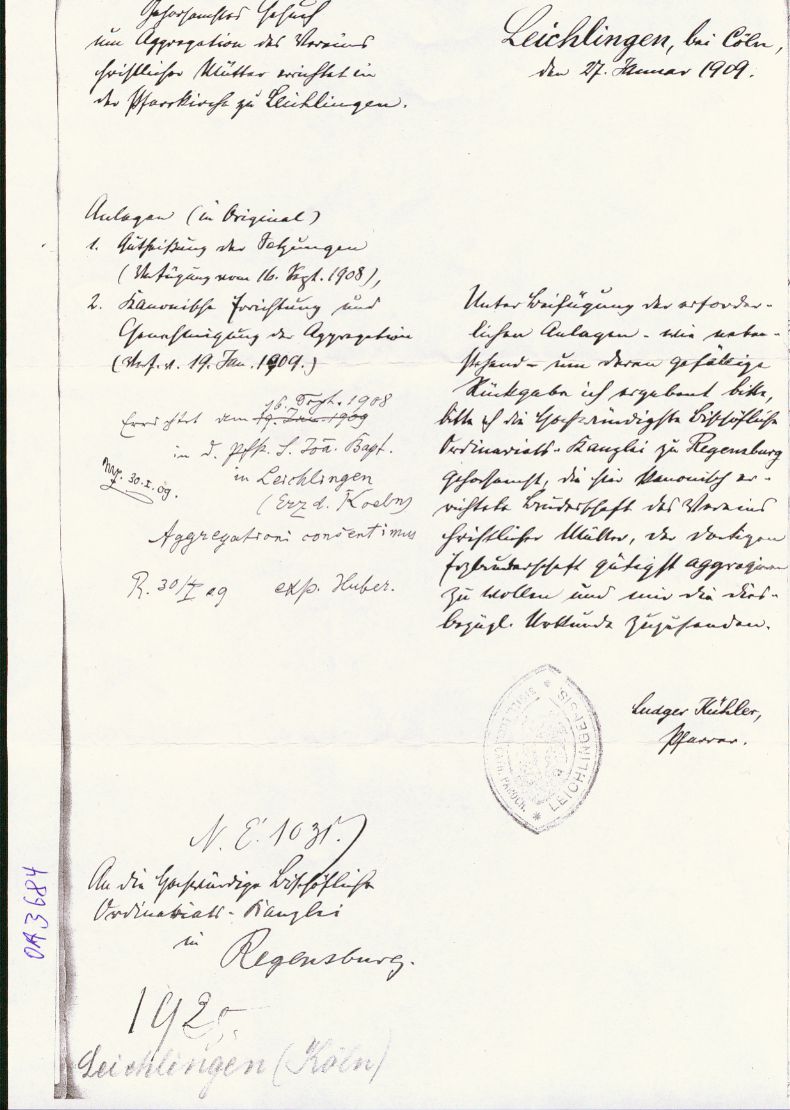 Gehorsamstes Gesuch
um Aggregation des Vereins
christlicher Mütter errichtet in
der Pfarrkirche zu Leichlingen.
Leichlingen, bei Cöln,
den 27. Januar 1909.
Anlagen (in Original)
1. Gutheißung der Satzungen
(Verfügung vom 16. Sept. 1908),
2. Kanonische Errichtung und
Genehmigung der Aggregation
(Verf. v. 19. Jan. 1909.)
16. Sept. 1908
Errichtet dem 19. Jan. 1909
in d. Pfk. S. Joa. Bapt.
in Leichlingen
30. I. 09.
(Erzd. Koeln)
Aggregationi consentimus
R. 30/I 09 exp. Huber.
Unter Beifügung der erforder-
lichen Anlagen - wie neben-
stehend - um deren gefällige
Rückgabe ich ergebenst bitte,
bitte ich die Hochwürdigste Bischöfliche
Ordinariats-Kanzlei zu Regensburg
gehorsamst, die hier kanonisch er-
richtete Bruderschaft des Vereins
christlicher Mütter, der dortigen
Erzbruderschaft gütigst aggregieren
zu wollen und mir die dies-
bezügl. Urkunde zuzusenden.
Ludger Kühler,
Pfarrer.
LEICHLINGENSIS
PAROCH.
N. E. 1031.
An die Hochwürdige Bischöfliche
Ordinariats-Kanzlei
in
Regensburg.
192
Leichlingen (Köln)
OA 3684